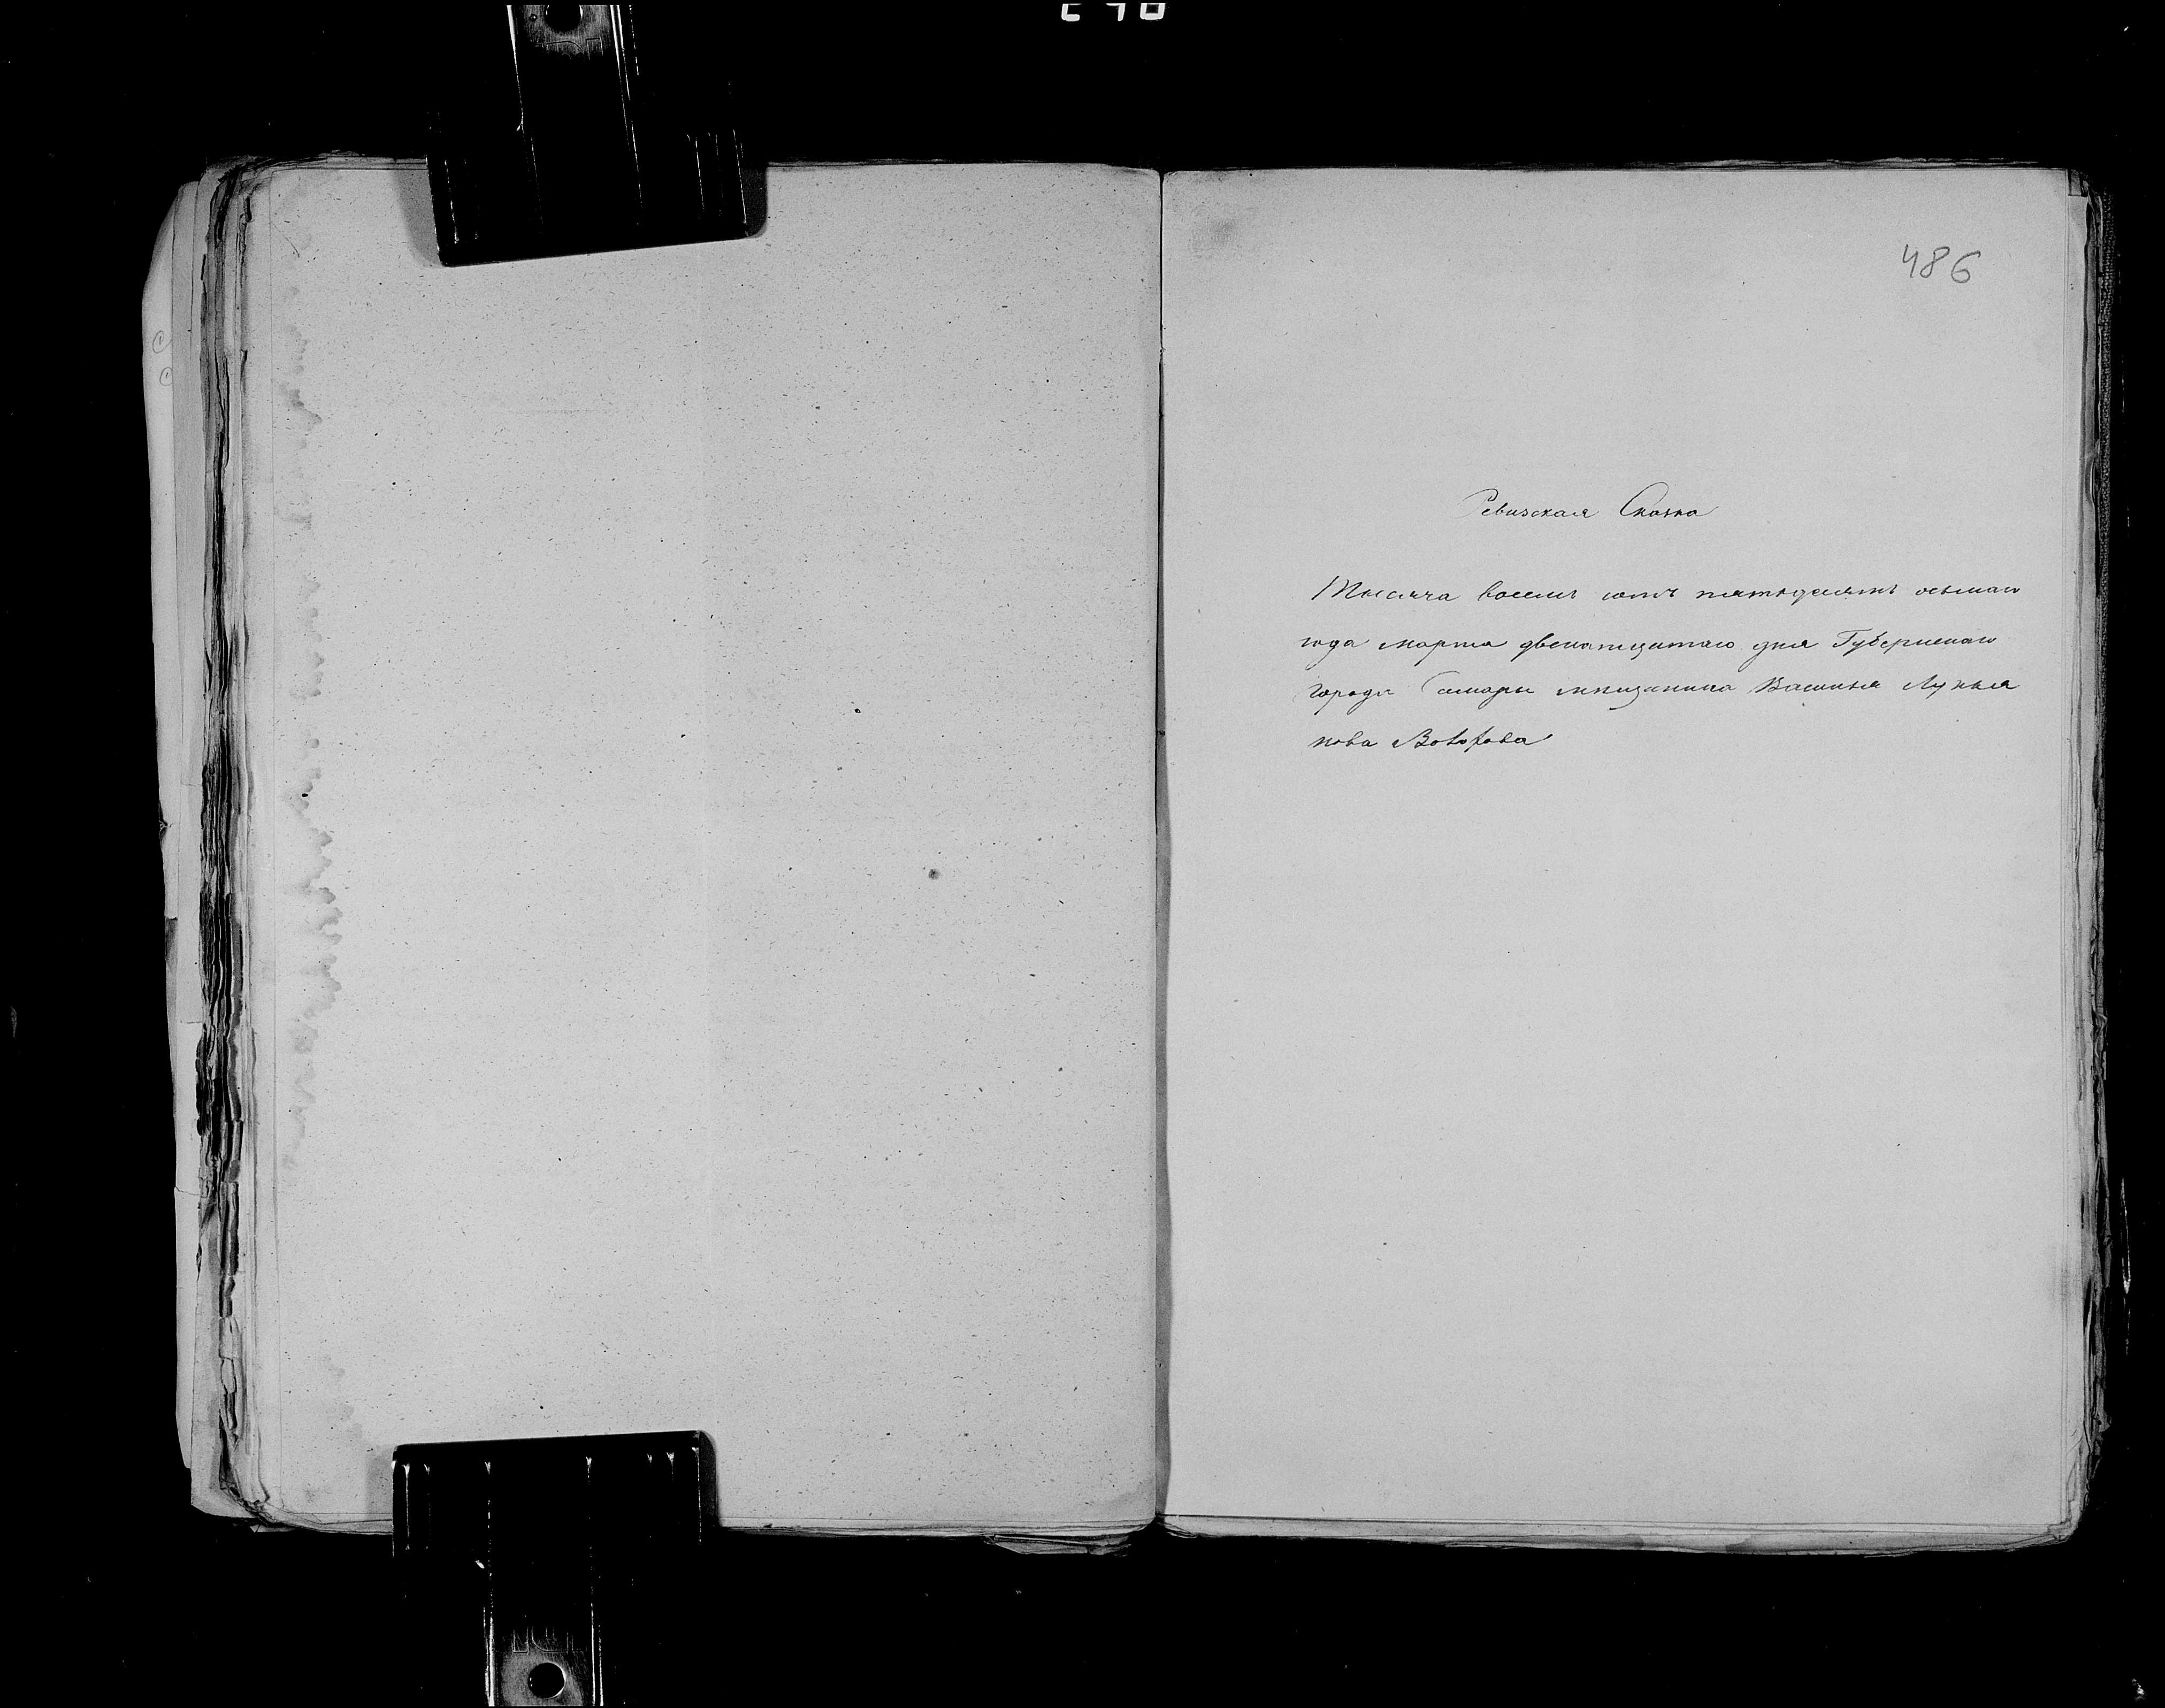 486
Ревизская Сказка
Тысяча восемь сотъ пятьдесятъ осьмаго
года марта двенатцатаго дня Губернскаго
города Самары мещанина Василья Лукья
нова